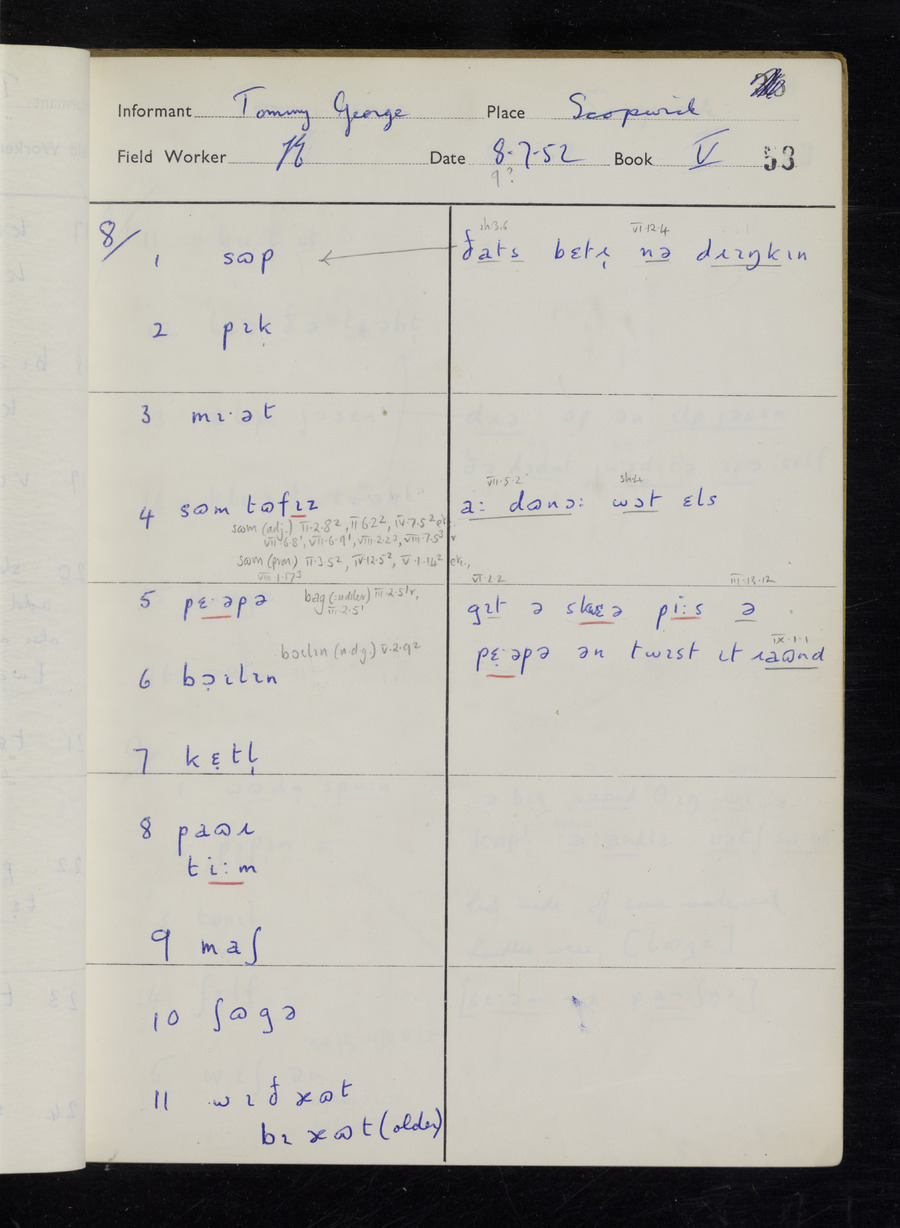 Informant Tommy George Place Scopwick
Field Worker Date 8·7·52 Book V 53
9?
8/
1 sɷp
2 pɪk
3 mɪ·ət
4 sɷm tɷfɪz
sɷm (adj.) II·2·8², II·6·2², IV·7·5² etc.
VII·6·8¹, VII·6·9¹, VIII·2·2², VIII·7·5³
sɷm (pron.) II·3·5², IV·12·5², V·1·14² etc.,
VIII·1·17³
5 pɛ·əpə bag (:udder) III·2·5¹r,
III·2·5¹
bɔɪlɪn (n.dg) V·2·9²
6 bɔɪlɪn
7 kɛtl̩
8 paɷɹ
ti:m
9 maʃ
10 ʃɷgə
11 wɪðaɷt
bɪaɷt (older)
sh.3.6 VI·12·4
ðats bɛtɹ̩ nə dɹɪŋkɪn
VII·5·2
a: dɷnə: wɒt ɛls
VI·2·2 III·13·12
gɪt ə skwɛə pi:s ə
IX·1·1
pɛ·əpə ən twɪst ɪt ɹaɷnd